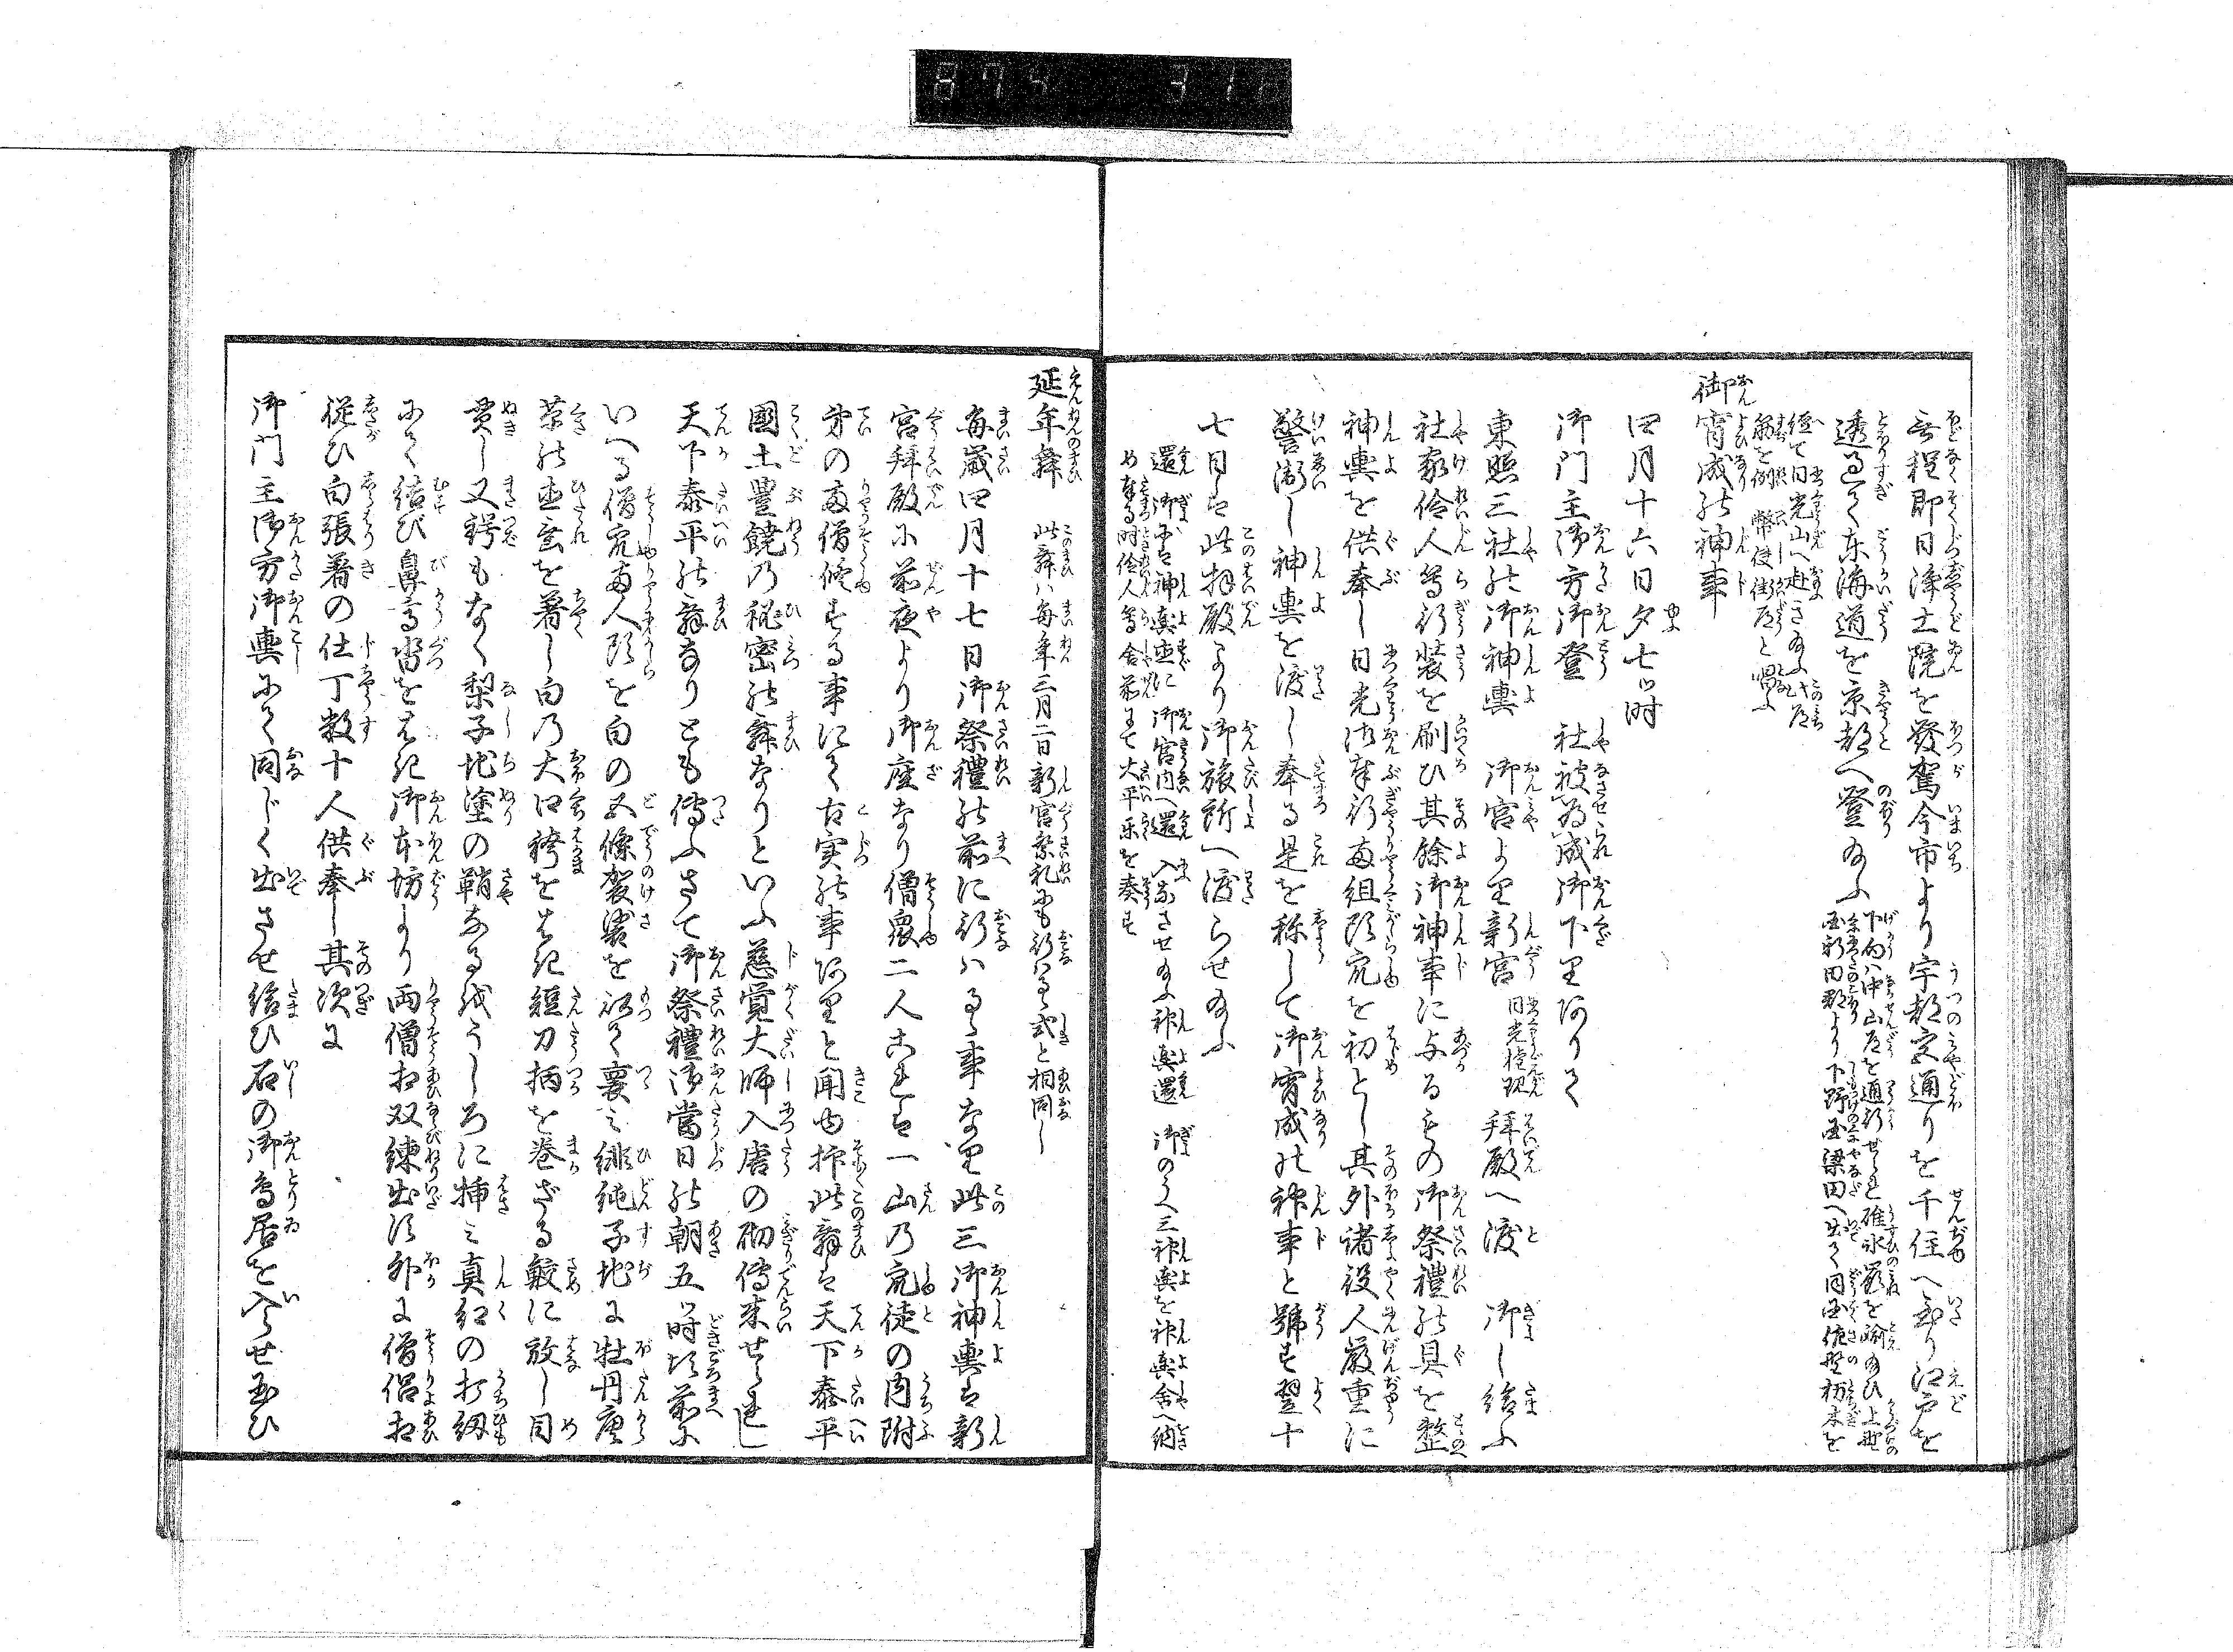 無程即日浄土院を發駕今市より宇都宮通りを千住へ至り江戸を
透過て東海道を京都へ登給ふ
下向ハ中山道を通行せられ碓氷嶺を踰給ひ上野
国新田郡より下野国梁田へ出て同国佐野栃木を
経て日光山へ赴き給ふ此道
筋を例幣使街道と唱ふ
御宵成の神事
四月十六日夕七ツ時
御門主御方御登 社被為成御下里ありて
東照三社の御神輿 御宮より新宮 日光権現 拝殿へ渡 御し給ふ
社家伶人等行装を刷ひ其餘御神事に与るものの御祭禮の具を整
神輿を供奉し日光御奉行両組頭衆を初とし其外諸役人嚴重に
警衛し神輿を渡し奉る是を称して御宵成の神事と號す翌十
七日は此拝殿より御旅所へ渡らせ給ふ
還御には神輿直に御宮内へ還入なさせ給ふ神輿還 御のうへ三神輿を神輿舎へ納
め奉る時伶人等舎前にて太平楽を奏す
延年舞 此舞ハ毎年三月二日新宮祭礼にも行はるゝ式と相同し
毎歳四月十七日御祭禮の前に行ハるゝ事なり此三御神輿は新
宮拝殿に前夜より御座なり僧衆二人これは一山の衆徒の内附
弟の両僧修する事にて古実の事ありと聞ゆ抑此舞は天下泰平
國土豊饒乃秘密の舞なりといふ慈覚大師入唐の砌傳来せられし
天下泰平の舞なりとも傳ふさて御祭禮御當日の朝五時頃前に
いへる僧衆両人頭を白の五條袈裟を被て裹ミ緋純子地に牡丹唐
草の直垂を着し白乃大口袴をはき短刀柄を巻ざる鮫に放し目
貫し又鍔もなく梨子地塗の鞘なるをうしろに挿ミ真紅の打紐
にて結び鼻高沓をはき御本坊より両僧相双練出此外に僧侶相
従ひ白張着の仕丁数十人供奉し其次に
御門主御方御輿にて同じく出させ給ひ石の御鳥居を入らせ玉ひ